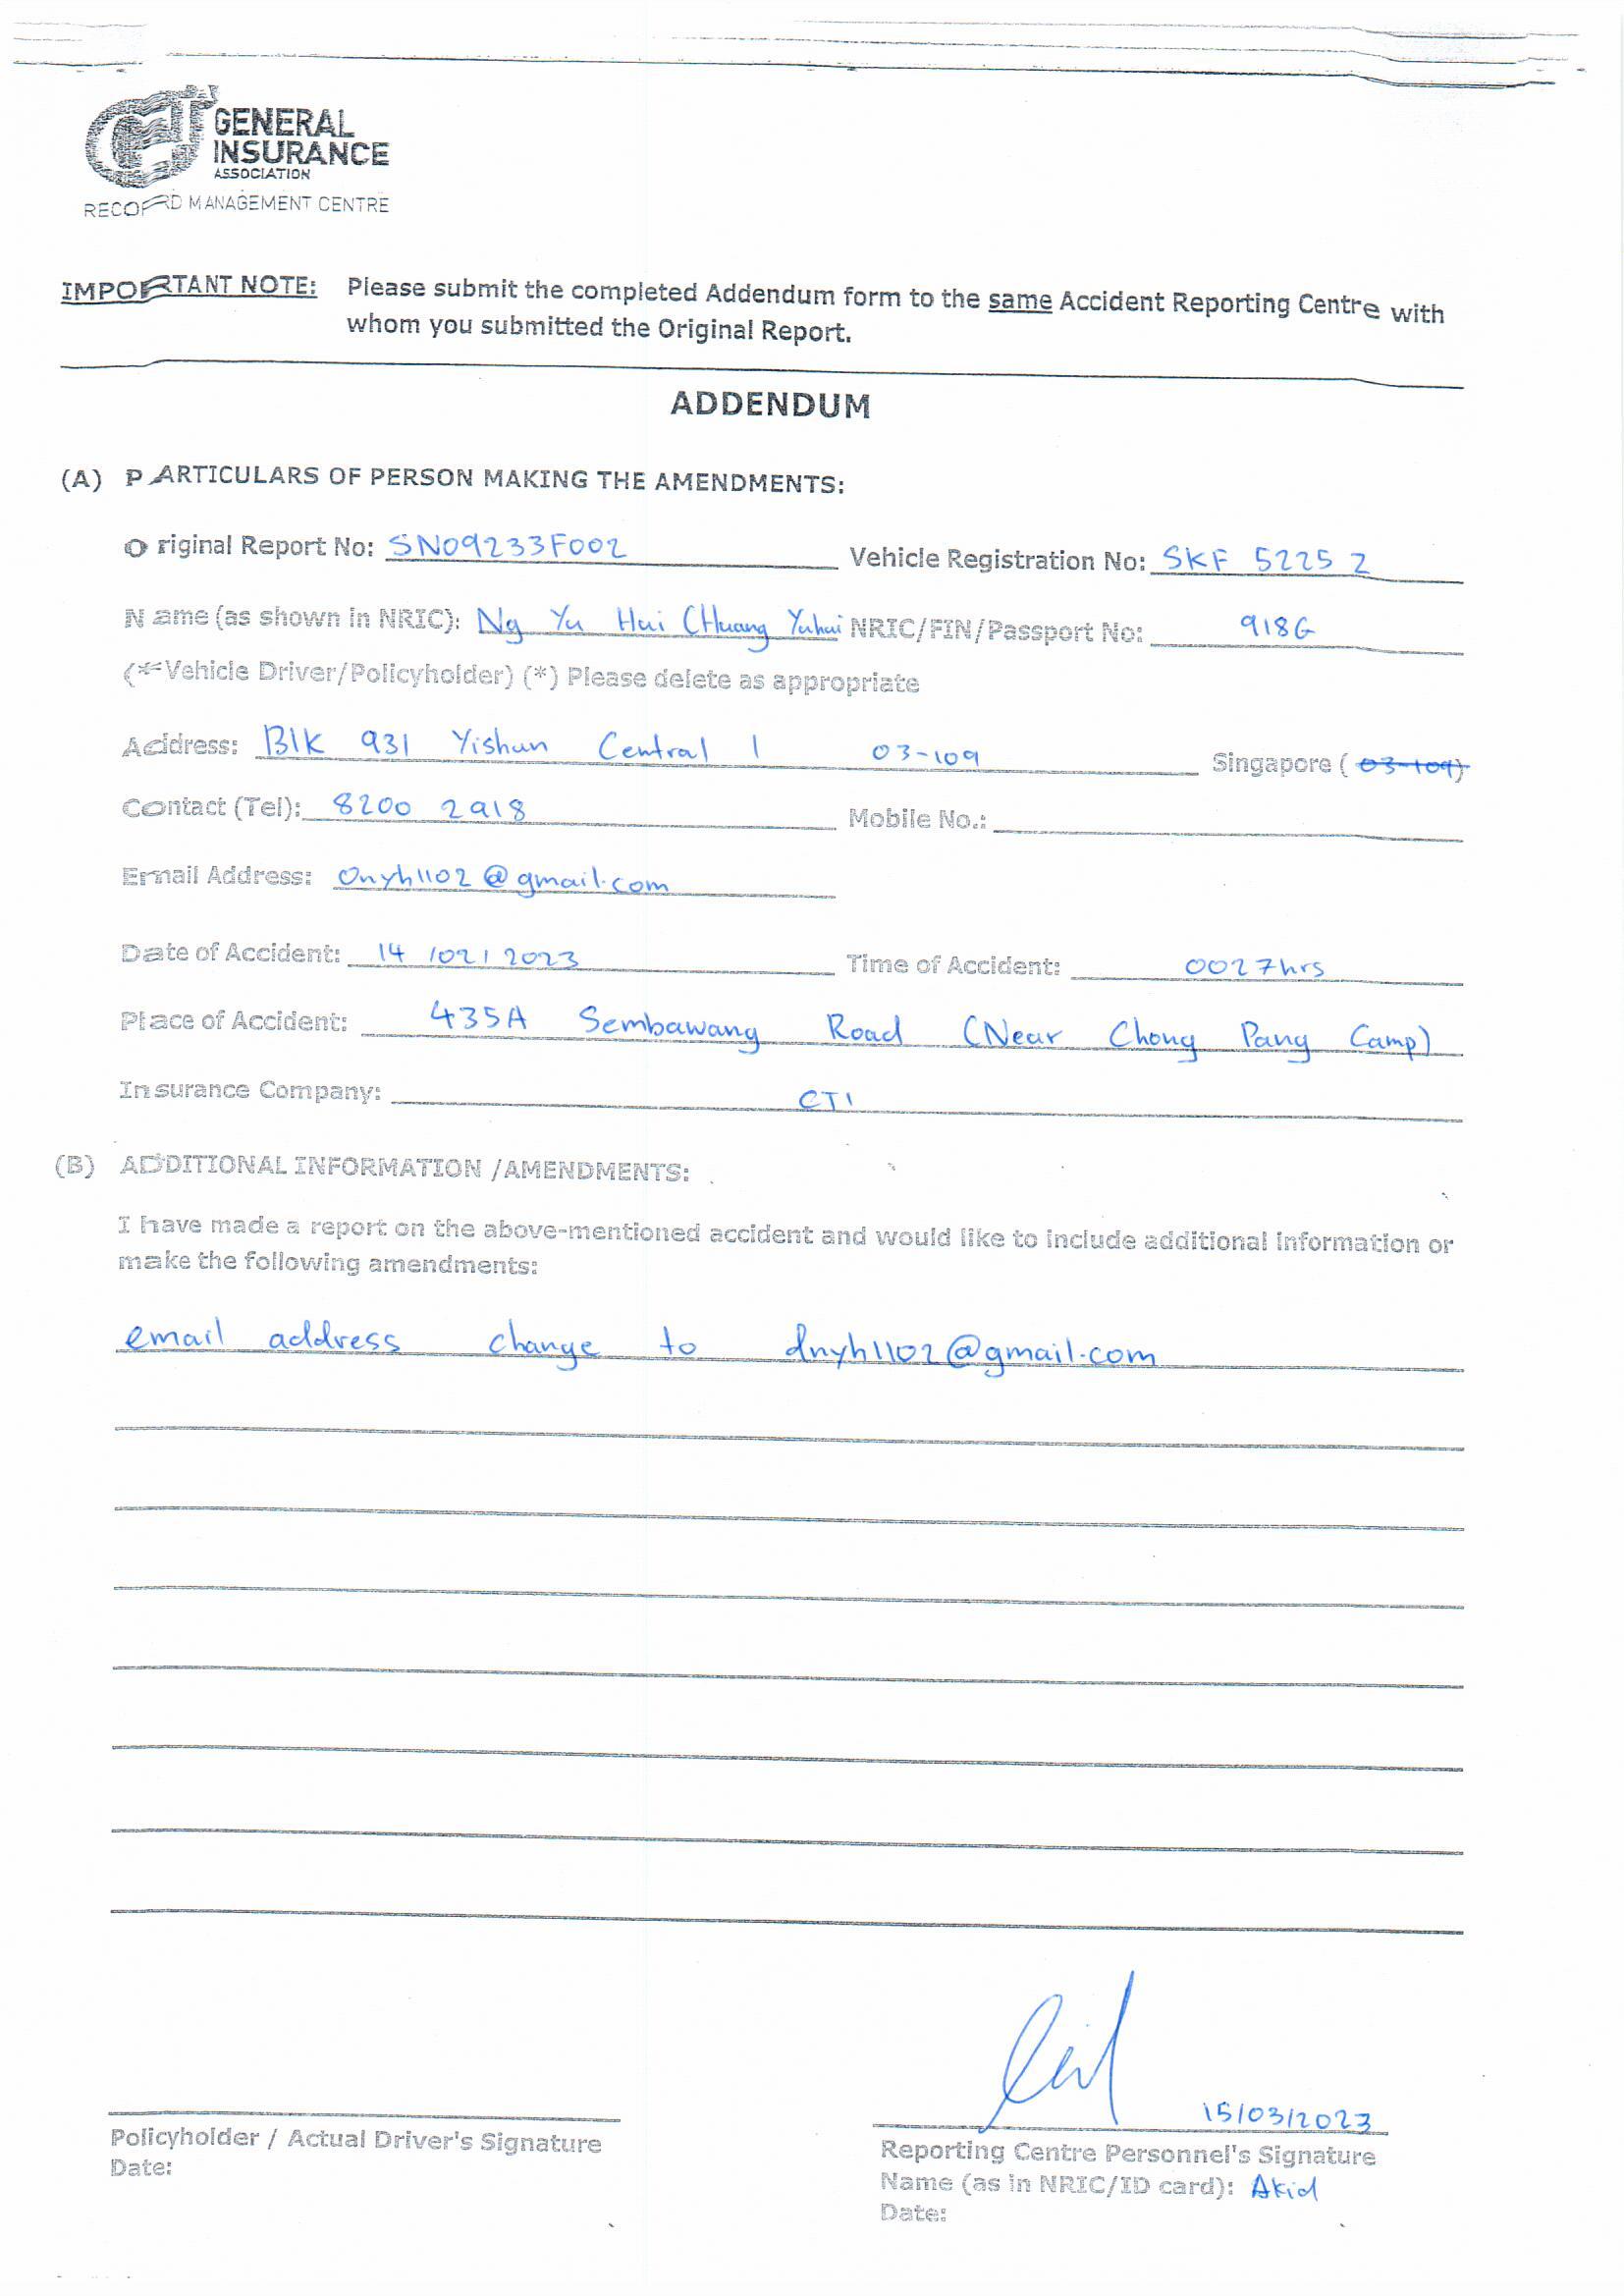 GENERAL
INSURANCE
ASSOCIATION
RECORD MANAGEMENT CENTRE
IMPORTANT NOTE: Please submit the completed Addendum form to the same Accident Reporting Centre with
whom you submitted the Original Report.
ADDENDUM
(A) PARTICULARS OF PERSON MAKING THE AMENDMENTS:
Original Report No: SN09233F002 Vehicle Registration No: SKF 5225 Z
Name (as shown in NRIC): Ng Yu Hui (Huang Yuhui NRIC/FIN/Passport No: 918G
(*Vehicle Driver/Policyholder) (*) Please delete as appropriate
Address: Blk 931 Yishun Central 1 03-109 Singapore ( 03-109)
Contact (Tel): 8200 2918 Mobile No.:
Email Address: Onyh1102@gmail.com
Date of Accident: 14/02/2023 Time of Accident: 0027hrs
Place of Accident: 435A Sembawang Road (Near Chong Pang Camp)
Insurance Company: CTI
(B) ADDITIONAL INFORMATION /AMENDMENTS:
I have made a report on the above-mentioned accident and would like to include additional information or
make the following amendments:
email address change to dnyh1102@gmail.com
15/03/2023
Policyholder / Actual Driver's Signature
Date:
Reporting Centre Personnel's Signature
Name (as in NRIC/ID card): Akid
Date: